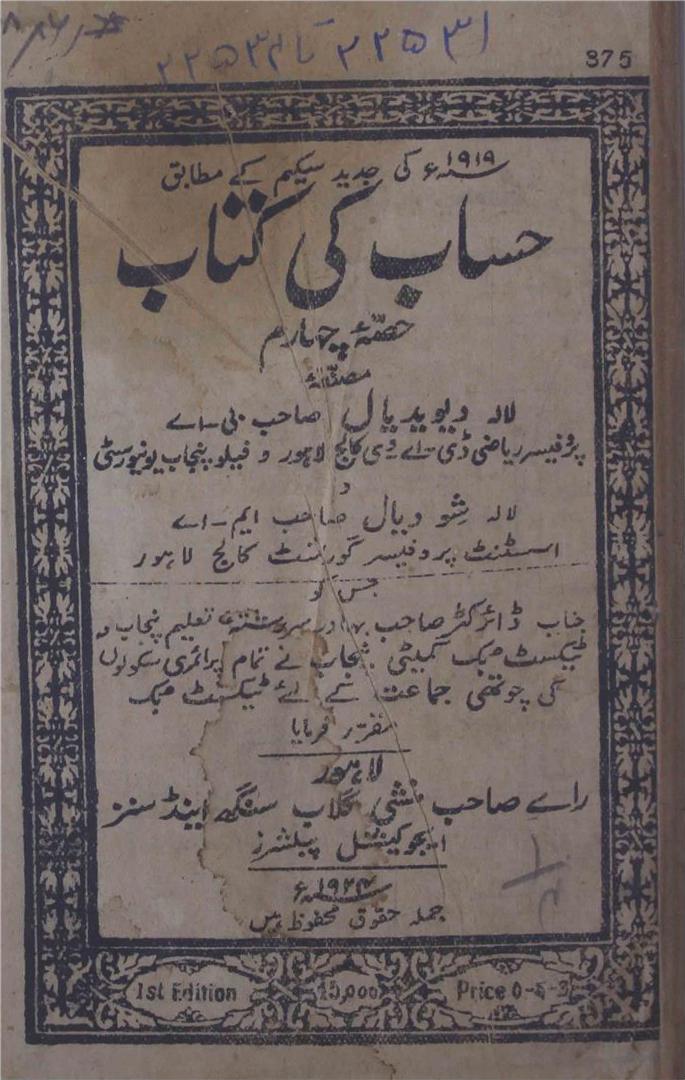 ۲۲۵۳۱
375
۱۹۱۹ء کی جدید سیکیم کے مطابق
حساب کی کتاب
حصّۂ چہارم
مصنّفۂ
لالہ دیویدیال صاحب بی-اے
پروفیسر ریاضی ڈی-اے وی کالج لاہور و فیلو پنجاب یونیورسٹی
و
لالہ شِو دیال صاحب ایم-اے
اسسٹنٹ پروفیسر گورنمنٹ کالج لاہور
جس کو
جناب ڈائرکٹر صاحب بہادر سررشتہ تعلیم پنجاب و
ٹیکسٹ بک کمیٹی پنجاب نے تمام پرائمری سکولوں
کی چوتھی جماعت کے لئے ٹیکسٹ بک
مقرّر فرمایا
لاہور
رائے صاحب منشی گلاب سنگھ اینڈ سنز
ایجوکیشنل پبلشرز
جملہ حقوق محفوظ ہیں
1st Edition
15,000
Price 0-5-3